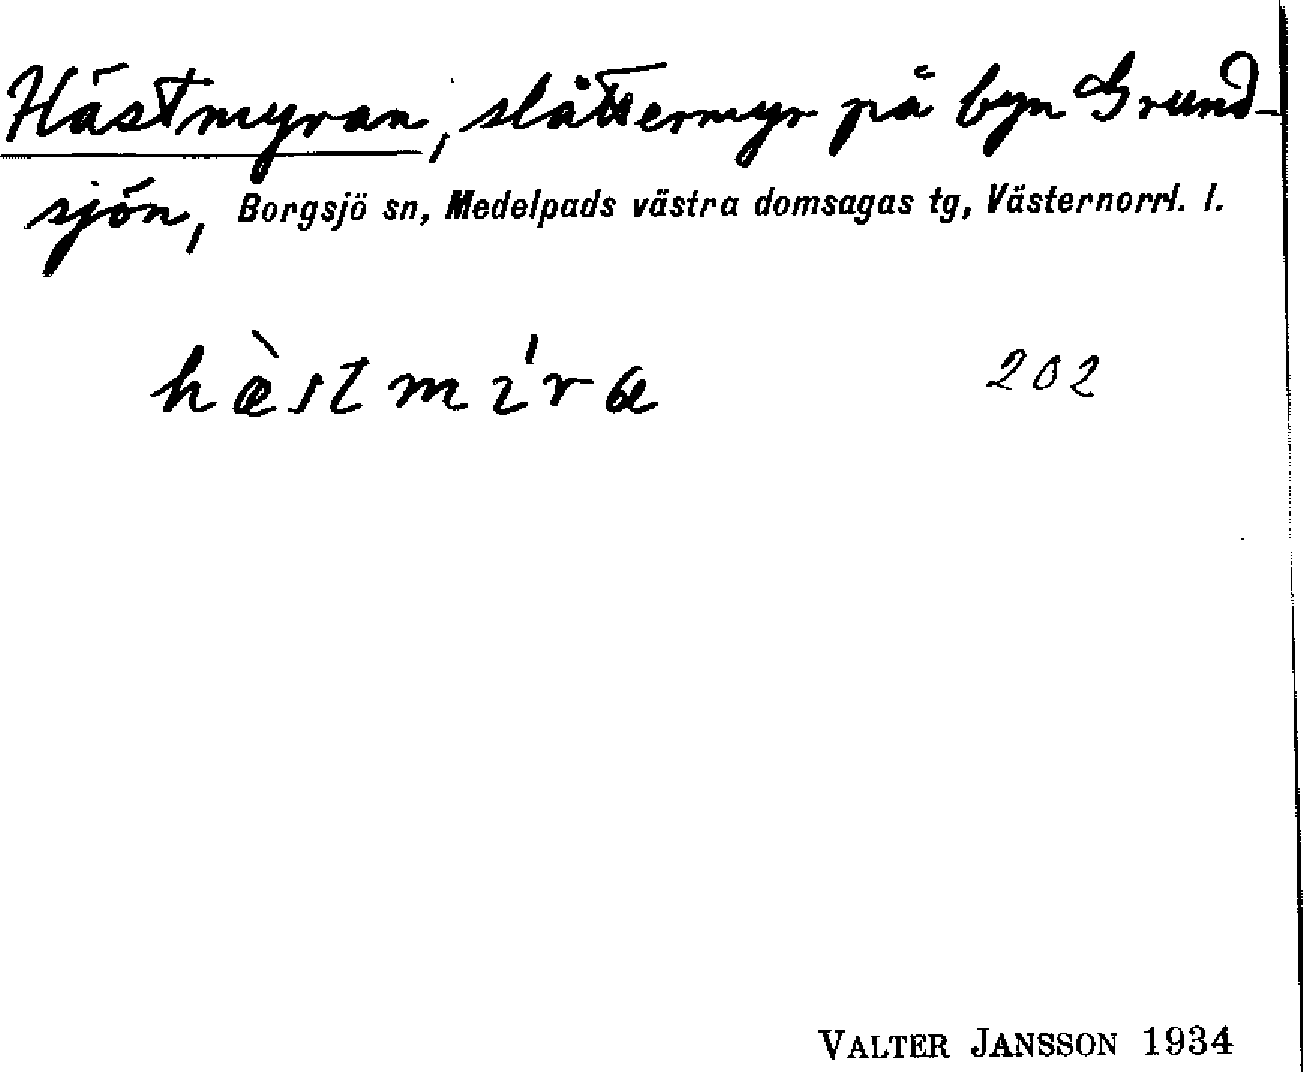 Hästmyran, slåttermyr på byn Grund-
sjön, Borgsjö sn, Medelpads västra domsagas tg, Västernorrl. l.
hæ̀stmı̍ra 202
VALTER JANSSON 1934